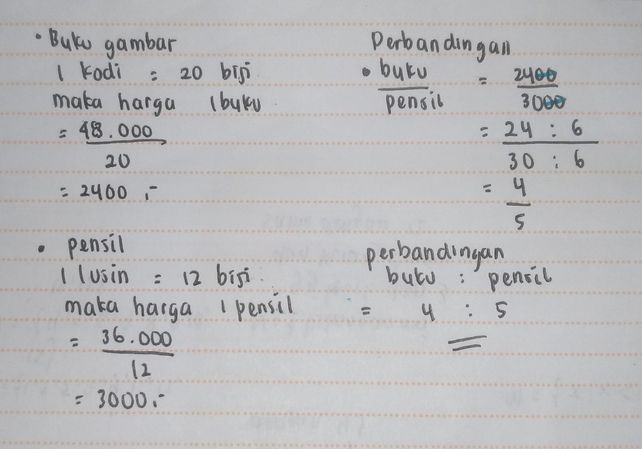 • Buku gambar
1 kodi = 20 biji
maka harga 1 buku
= 48.000
20
= 2400 ,-
• pensil
1 lusin = 12 biji
maka harga 1 pensil
= 36.000
12
= 3000,-
Perbandingan
• buku = 2400
pensil 3000
= 24 : 6
30 : 6
= 4
5
perbandingan
buku : pensil
= 4 : 5